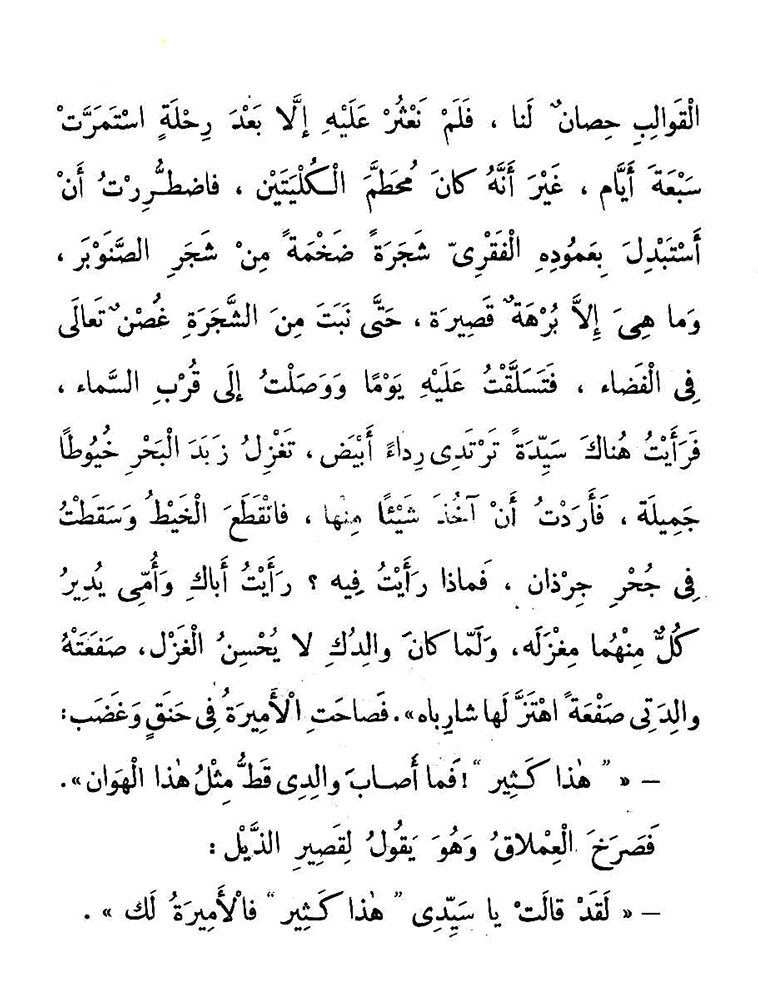 الْقَوالِبِ حِصانٌ لَنا ، فَلَمْ نَعْثُرْ عَلَيْهِ إِلَّا بَعْدَ رِحْلَةٍ اسْتَمَرَّتْ
سَبْعَةَ أَيَّام ، غَيْرَ أَنَّهُ كانَ مُحَطمَّ الْكُلْيَتَيْن ، فاضطُّرِرْتُ أَنْ
أَسْتَبْدِلَ بِعَمُودِهِ الْفَقْرِىّ شَجَرَةً ضَخْمَةً مِنْ شَجَرِ الصَّنَوْبَر ،
وَما هِىَ إِلاَّ بُرْهَةٌ قَصِيرَة ، حَتَّى نَبَتَ مِنَ الشَّجَرَةِ غُصْنٌ تَعالَى
فِى الْفَضاء ، فَتَسَلَّقْتُ عَلَيْهِ يَوْمًا وَوَصَلْتُ إلَى قُرْبِ السَّماء ،
فَرَأَيْتُ هُناكَ سَيِّدَةً تَرْتَدِى رِداءً أَبْيَض ، تَغْزِلُ زَبَدَ الْبَحْرِ خُيُوطًا
جَمِيلَة ، فَأَرَدْتُ أَنْ آخُذَ شَيْئًا مِنْها ، فانْقَطَعَ الْخَيْطُ وَسَقَطْتُ
فِى جُحْرِ جِرْذان ، فَماذا رَأَيْتُ فِيه ؟ رَأَيْتُ أَباكِ وَأُمِّى يُدِيرُ
كُلٌّ مِنْهُما مِغْزَلَه ، وَلَمّا كانَ والِدُكِ لا يُحْسِنُ الْغَزْل ، صَفَعَتْهُ
والِدَتِى صَفْعَةً اهْتَزَّ لَها شارِباه » . فَصاحَتِ الْأَمِيرَةُ فِى حَنَقٍ وَغَضَب :
– « " هٰذا كَثِير " ! فَما أَصابَ والِدِى قَطُّ مِثْلُ هٰذا الْهَوان » .
فَصَرَخَ الْعِمْلاقُ وَهُوَ يَقُولُ لِقَصِيرِ الذَّيْل :
– « لَقَدْ قالَتْ يا سَيِّدِى " هٰذا كَثِير " فالْأَمِيرَةُ لَك » .